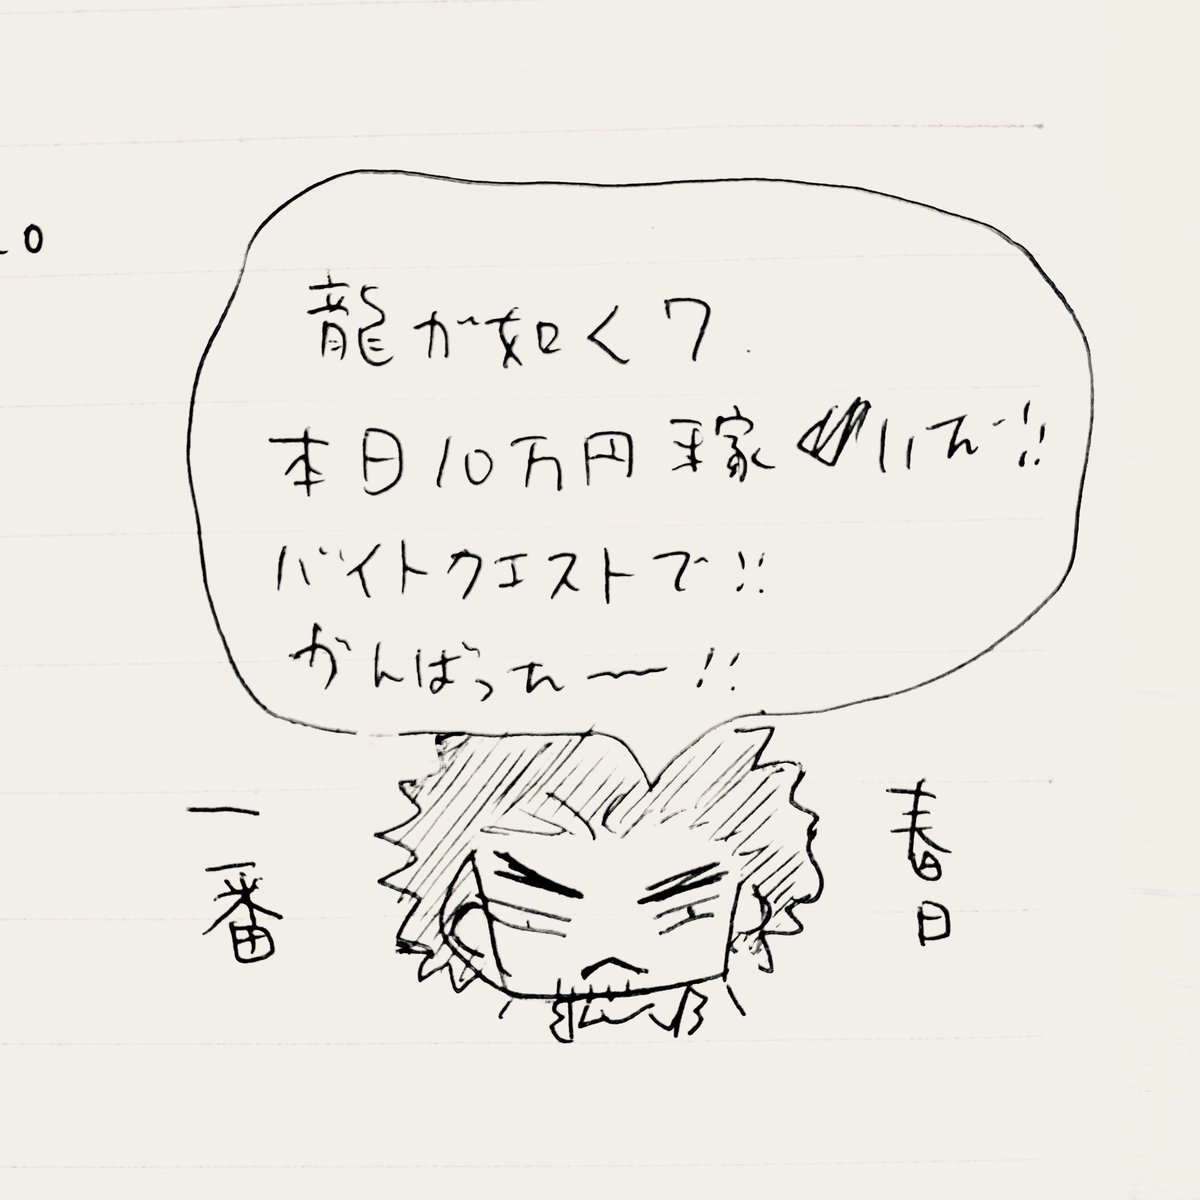 龍が如く7
本日10万円稼いだ!!
バイトクエストで!!
がんばったー!!
春日
一番